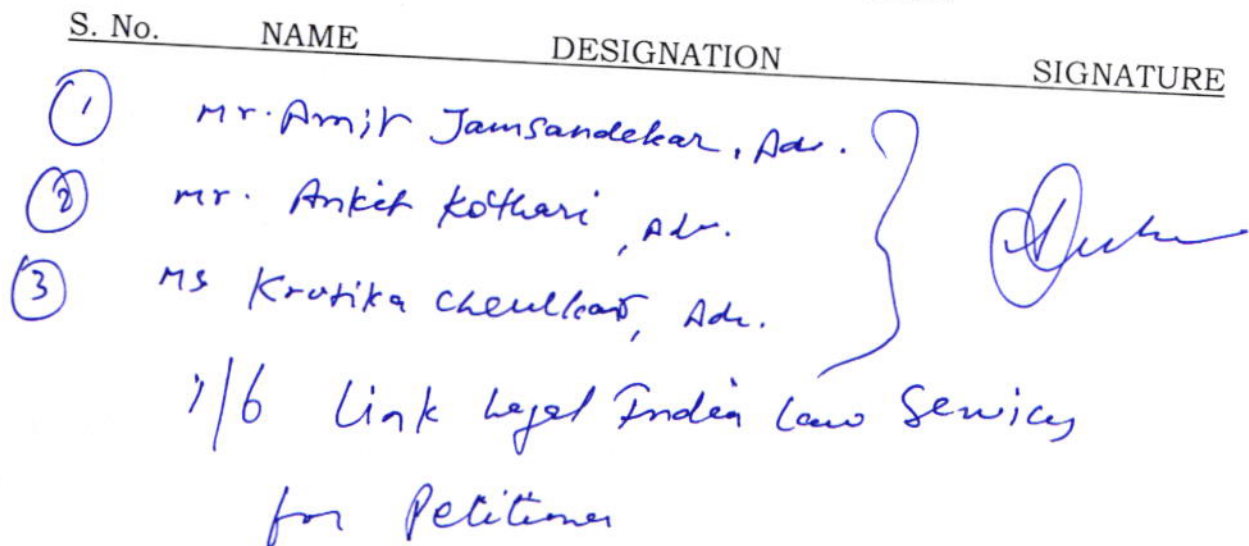 S. No. NAME DESIGNATION SIGNATURE
1 Mr. Amit Jamsandekar, Adv.
2 Mr. Ankit Kothari, Adv.
3 Ms Krutika Cheulkar, Adv.
i/b Link Legal India Law Services
for Petitioner